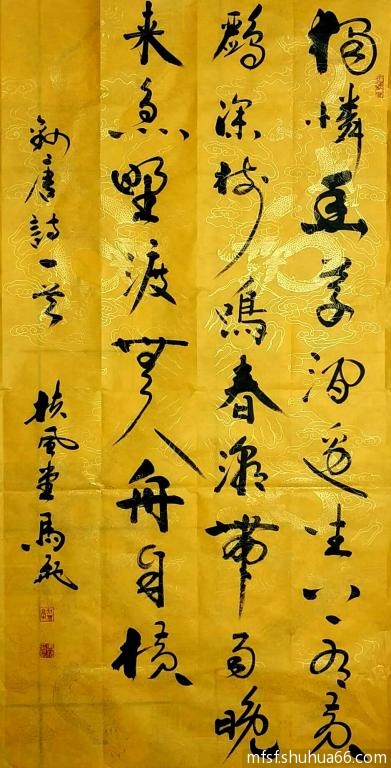 獨憐幽草澗邊生上有黃
鸝深樹鳴春潮帶雨晚
来急野渡無人舟自橫
錄唐詩一首 扶風堂馬
mfsf.shuhua66.com